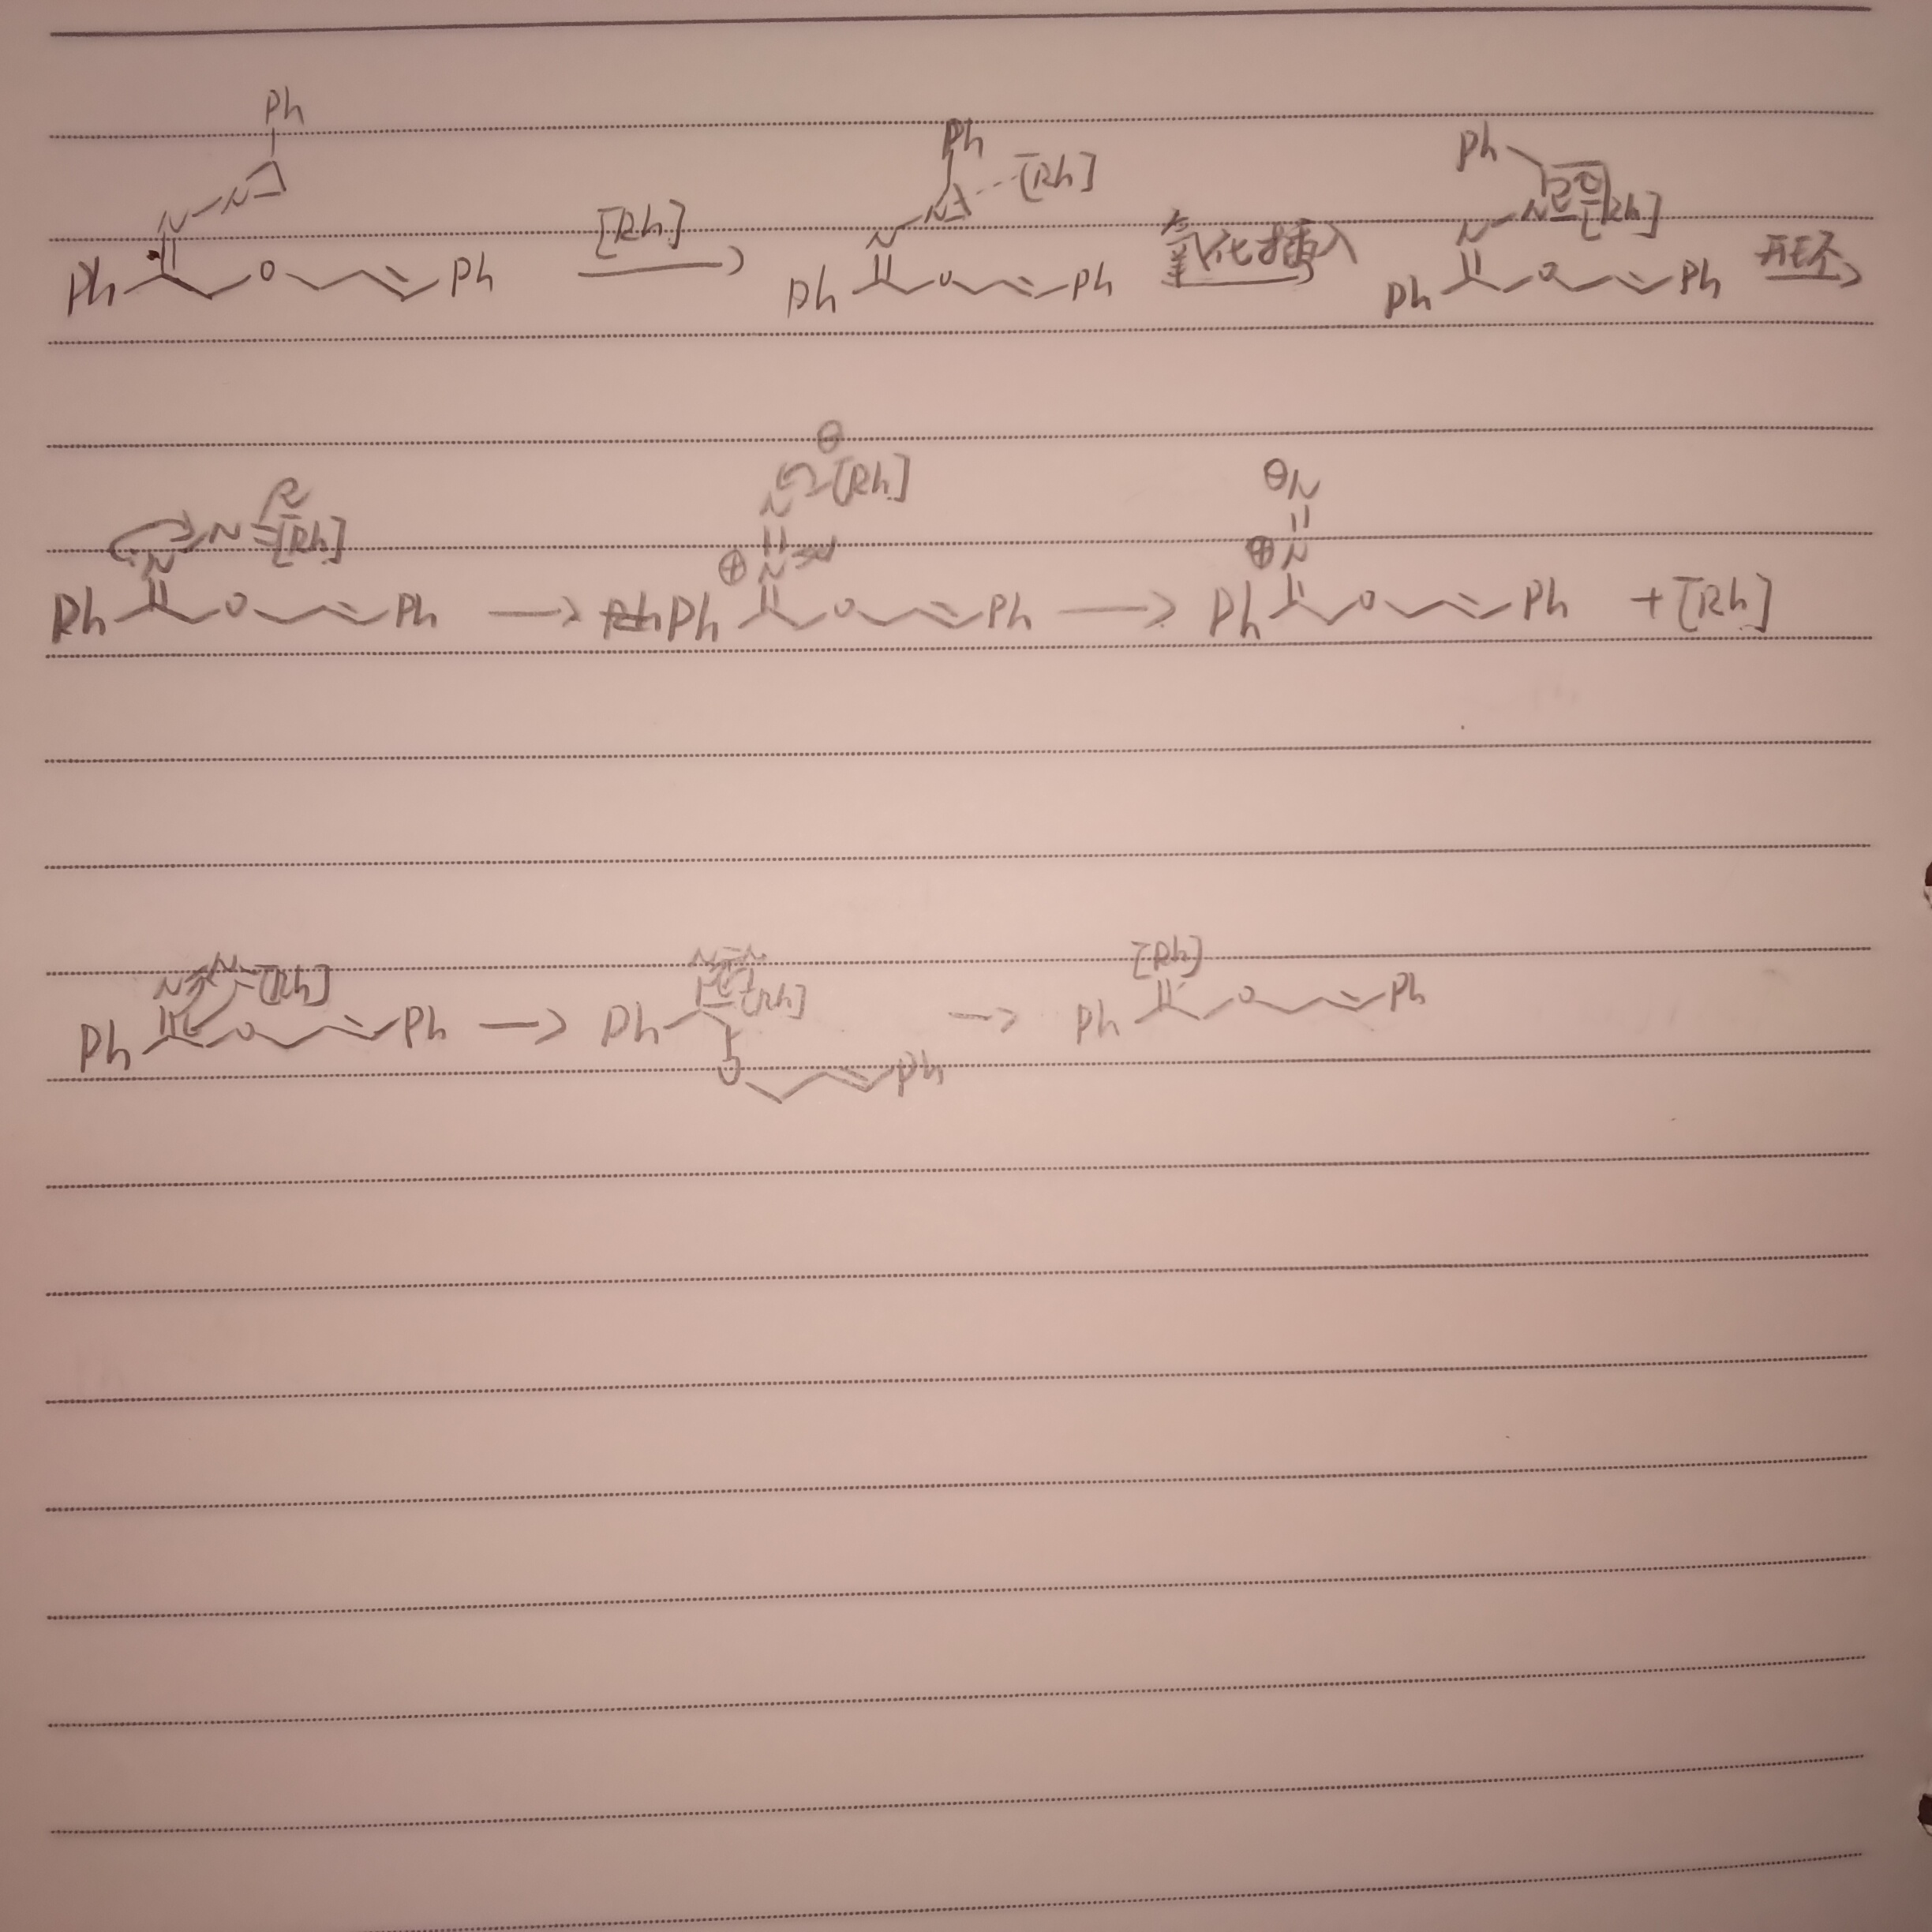 Ph
Ph [Rh] Ph
N N [Rh] N [Rh] 氧化插入 N N [Rh]
Ph O Ph Ph O Ph Ph O Ph 开环
⊖
N N [Rh] N [Rh] ⊖N
N ⊕ N ⊕ N
Ph O Ph Ph O Ph Ph O Ph + [Rh]
N N [Rh] N=N [Rh] [Rh]
Ph O Ph Ph Ph O Ph
O Ph